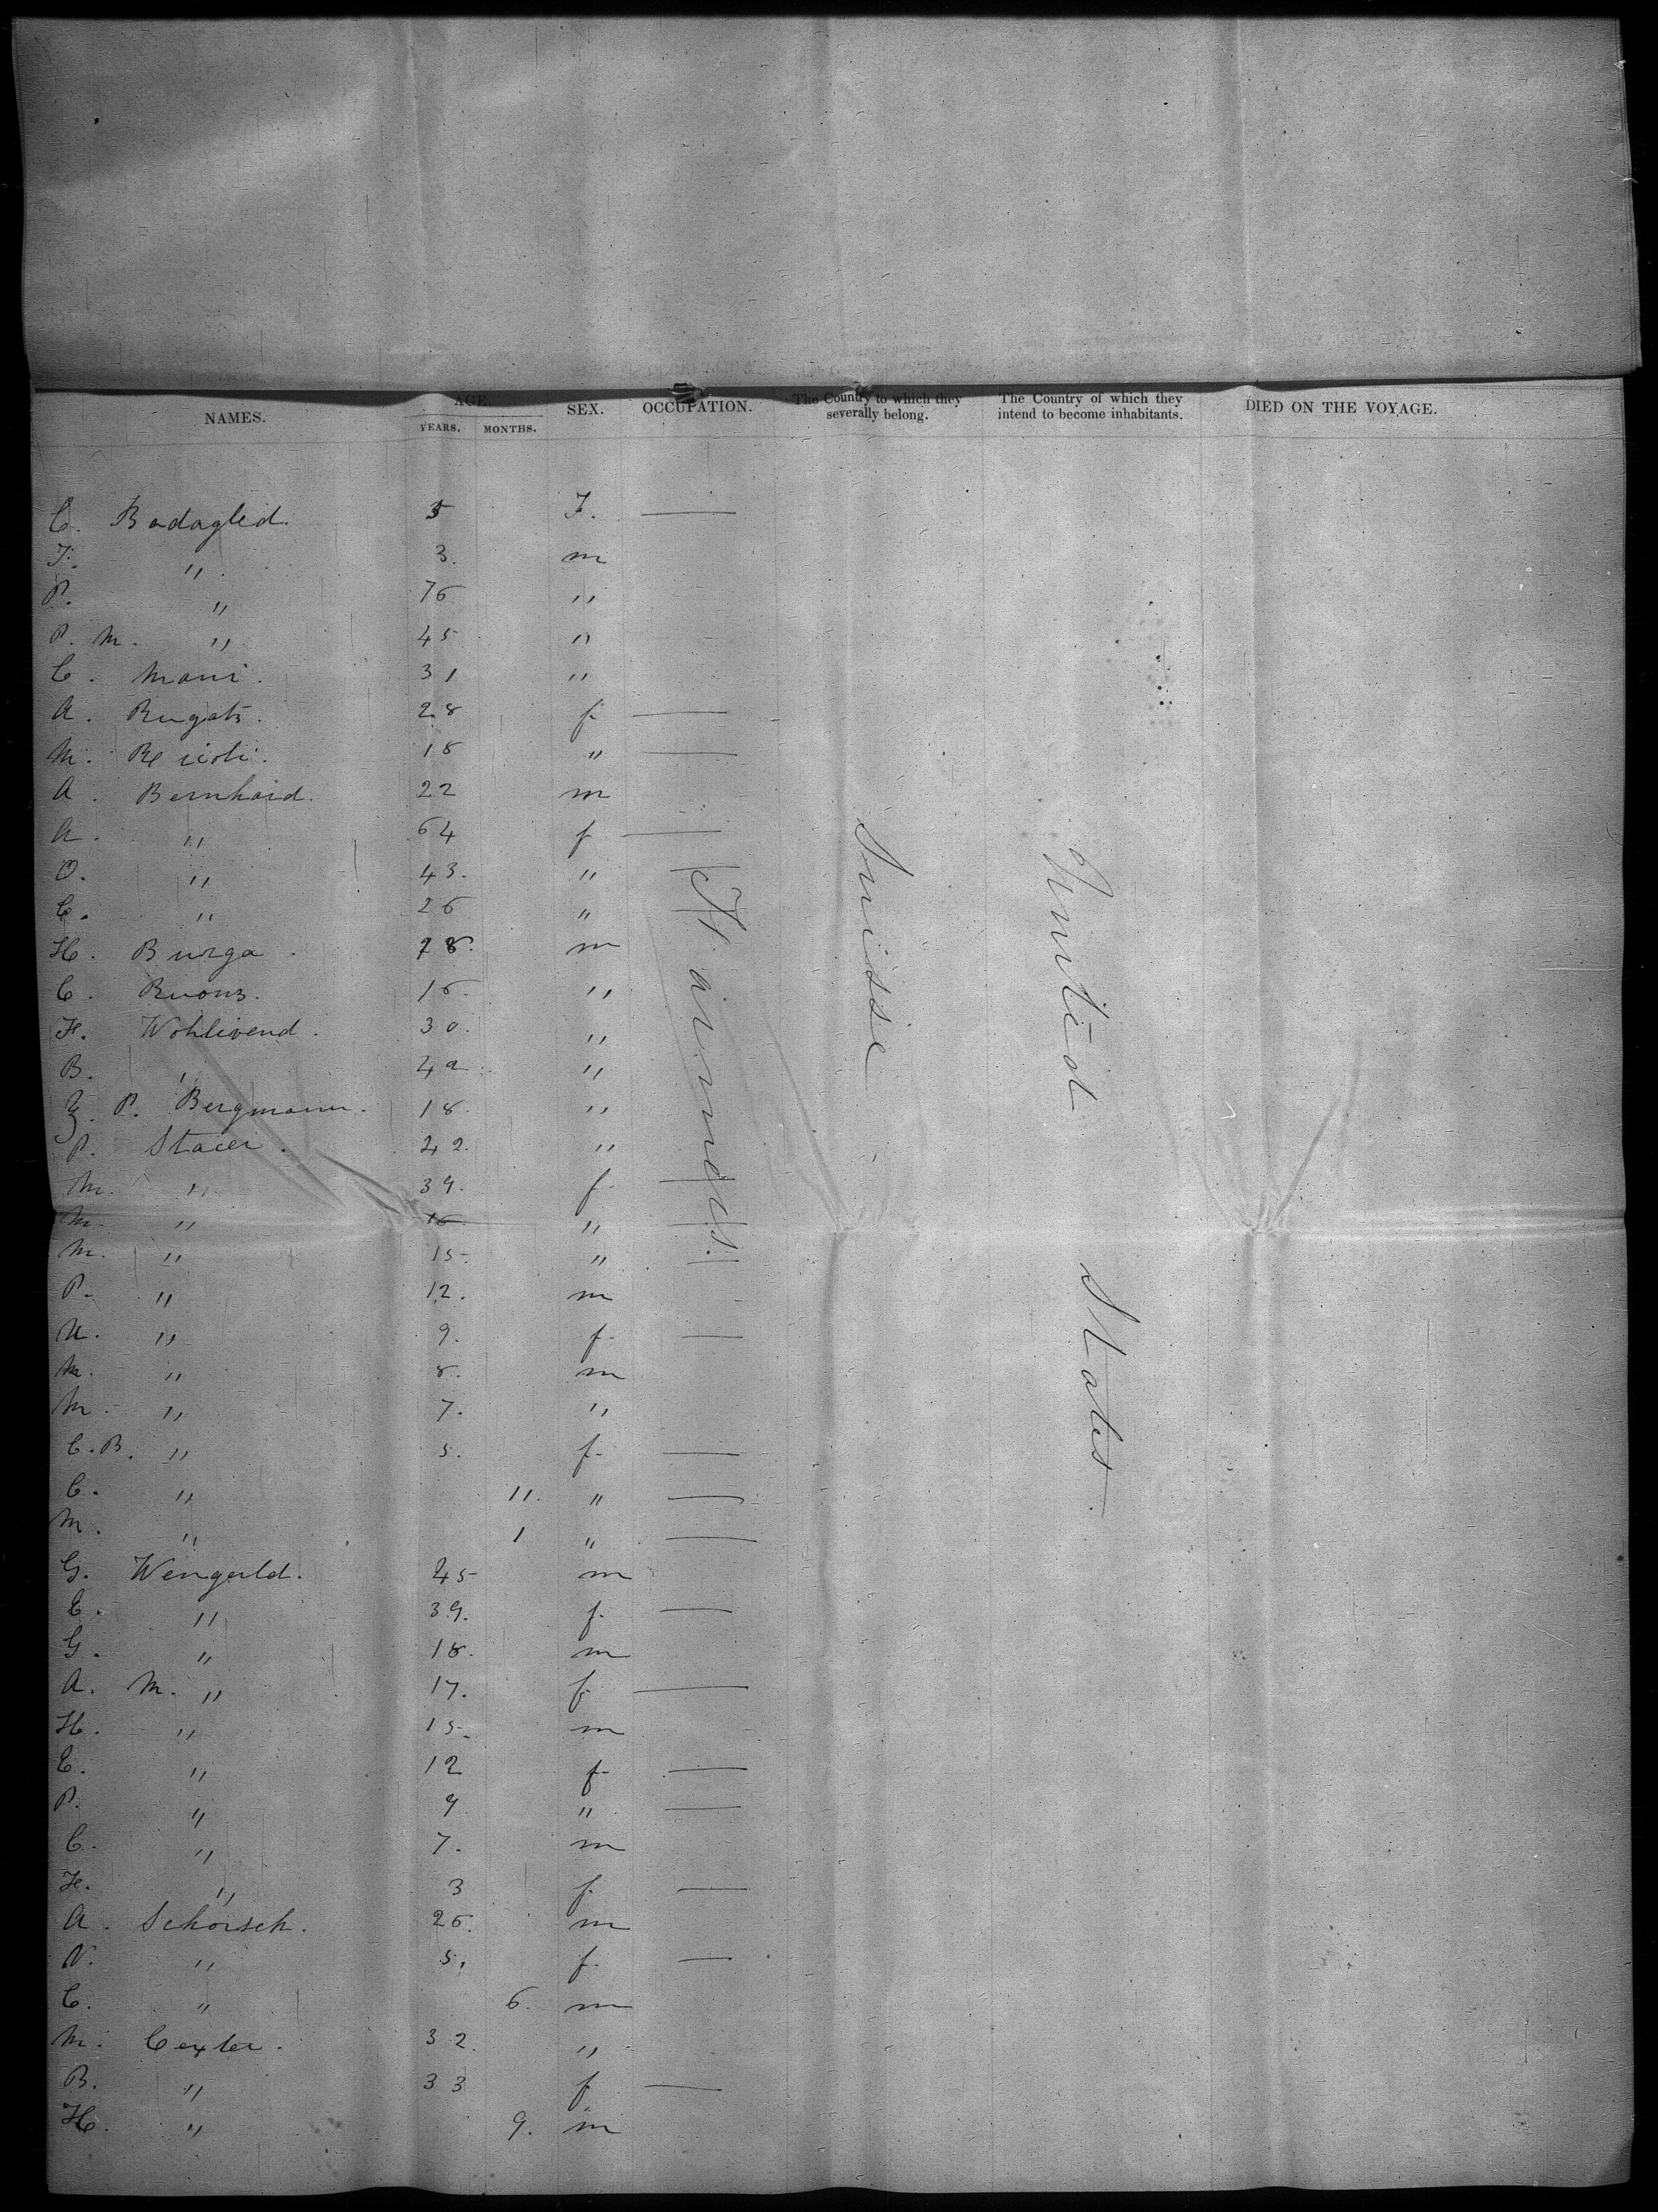 NAMES. AGE. YEARS. MONTHS. SEX. OCCUPATION. The Country to which they severally belong. The Country of which they intend to become inhabitants. DIED ON THE VOYAGE.
C. Badagled. 5 F. —
J. " 3. m
P. " 76 "
P. M. " 45 "
C. Mani. 31 "
A. Rugats. 28 f —
M. 18 " —
A. Bernhaid. 22 m
A. " 64 f —
O. " 43. " —
C. " 26 " —
H. Burga. 28. m
C. Ruons. 16. "
F. Wohlivend. 30. "
B. " 42 "
Z. P. Bergmann. 18. "
P. Staier. 42. "
M. " 39. f —
M. " 16 " —
M. " 15 " —
P. " 12. m
A. " 9. f —
M. " 8. m
M. " 7. "
C. B. " 5. f —
C. " 11. " —
M. " 1 " —
G. Wengerld. 45 m
E. " 39. f —
G. " 18. m
A. M. " 17. f —
H. " 15 m
E. " 12 f —
P. " 9 " —
C. " 7. m
F. " 3 f —
A. Schorsch. 26. m
N. " 5. f —
C. " 6. m
M. Cexter. 32. "
B. " 33 f —
H. " 9. m
Farmers.
Suisse
United States